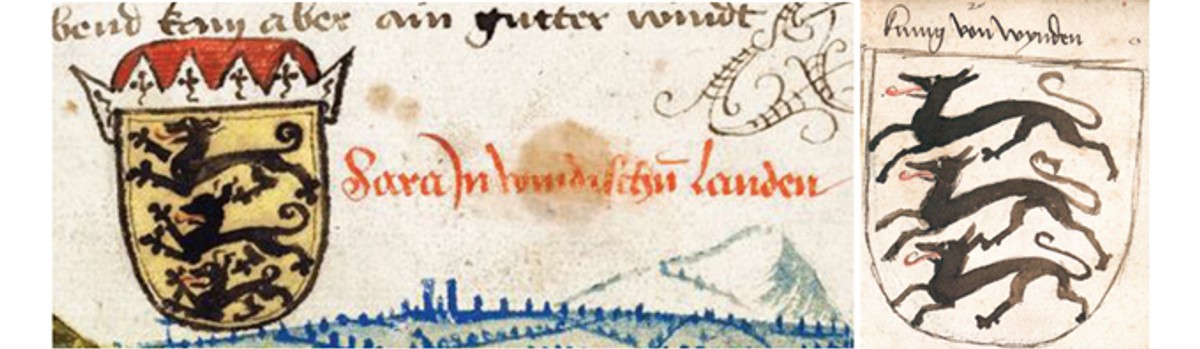 bend kam aber ain gutter windt
Sara In windischn̄ landen
kunig von wynden